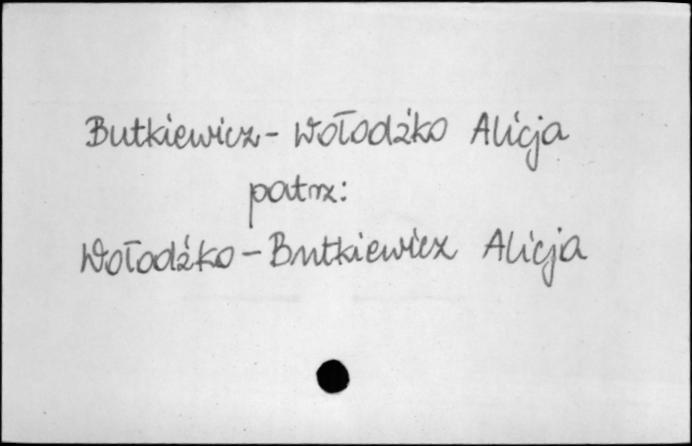 Butkiewicz-Wołodźko Alicja
patrz:
Wołodźko-Butkiewicz Alicja